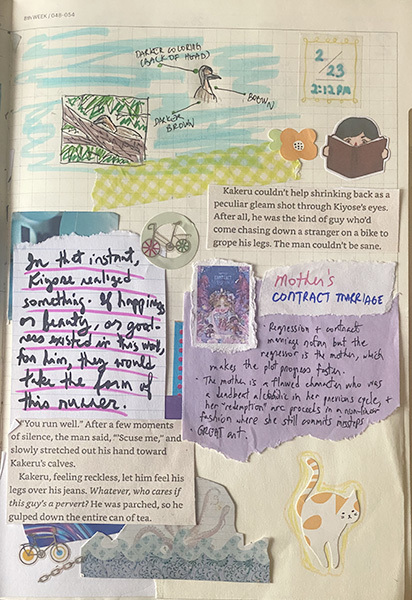 8th WEEK / 048-054
DARKER COLORING
(BACK OF HEAD)
BROWN
DARKER
BROWN
2
/
23
2:12PM
Kakeru couldn't help shrinking back as a
peculiar gleam shot through Kiyose's eyes.
After all, he was the kind of guy who'd
come chasing down a stranger on a bike to
grope his legs. The man couldn't be sane.
In that instant,
Kiyose realized
something. If happiness
or beauty, or good-
ness existed in this world,
for him, they would
take the form of
this runner.
Mother's
CONTRACT MARRIAGE
• Regression + contract
marriage
but the
regressor is the mother, which
makes the plot progress faster.
• The mother is a flawed character who was
a deadbeat alcoholic in her previous cycle, +
her "redemption" arc proceeds in a non-linear
fashion where she still commits missteps
• GREAT art.
"You run well." After a few moments
of silence, the man said, "'Scuse me," and
slowly stretched out his hand toward
Kakeru's calves.
Kakeru, feeling reckless, let him feel his
legs over his jeans. Whatever, who cares if
this guy's a pervert? He was parched, so he
gulped down the entire can of tea.